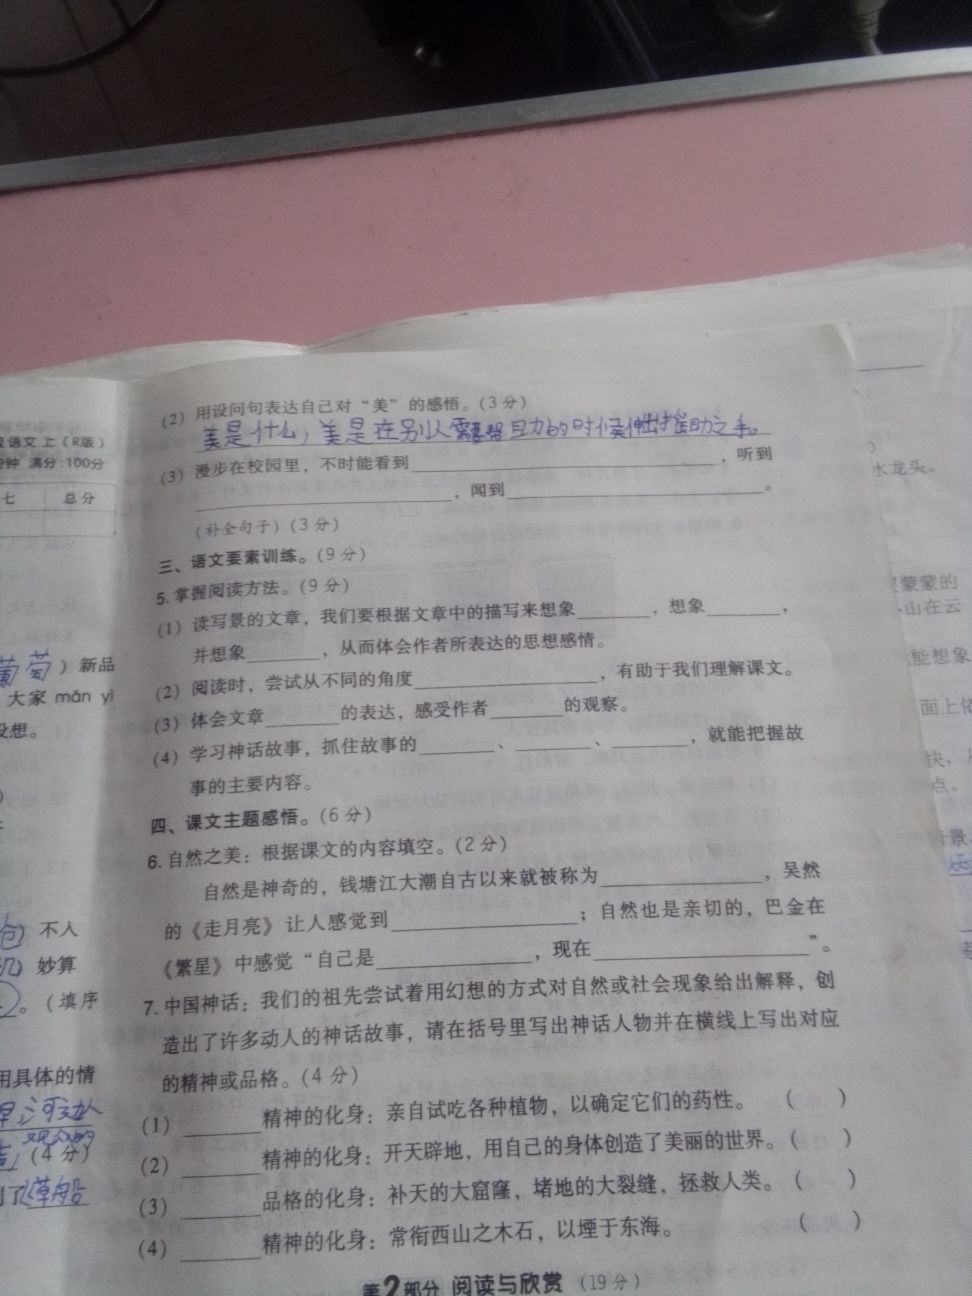 (2) 用设问句表达自己对“美”的感悟。(3分)
美是什么,美是在别人需要帮助的时候伸出援助之手。
(3) 漫步在校园里,不时能看到____,听到
____,闻到____。
(补全句子)(3分)
三、语文要素训练。(9分)
5.掌握阅读方法。(9分)
(1) 读写景的文章,我们要根据文章中的描写来想象____,想象____,
并想象____,从而体会作者所表达的思想感情。
(2) 阅读时,尝试从不同的角度____,有助于我们理解课文。
(3) 体会文章____的表达,感受作者____的观察。
(4) 学习神话故事,抓住故事的____、____、____,就能把握故
事的主要内容。
四、课文主题感悟。(6分)
6.自然之美:根据课文的内容填空。(2分)
自然是神奇的,钱塘江大潮自古以来就被称为____,吴然
的《走月亮》让人感觉到____;自然也是亲切的,巴金在
《繁星》中感觉“自己是____,现在____”。
7.中国神话:我们的祖先尝试着用幻想的方式对自然或社会现象给出解释,创
造出了许多动人的神话故事,请在括号里写出神话人物并在横线上写出对应
的精神或品格。(4分)
(1) ____精神的化身:亲自试吃各种植物,以确定它们的药性。( )
(2) ____精神的化身:开天辟地,用自己的身体创造了美丽的世界。( )
(3) ____品格的化身:补天的大窟窿,堵地的大裂缝,拯救人类。( )
(4) ____精神的化身:常衔西山之木石,以堙于东海。( )
第2部分 阅读与欣赏 (19分)
语文 上(R版)
分钟 满分:100分
七 总分
葡萄)新品
大家 mǎn yì
没想。
)不人
机)妙算
。(填序
用具体的情
(4分)
水龙头。
蒙蒙的
山在云
能想象
面上
点。